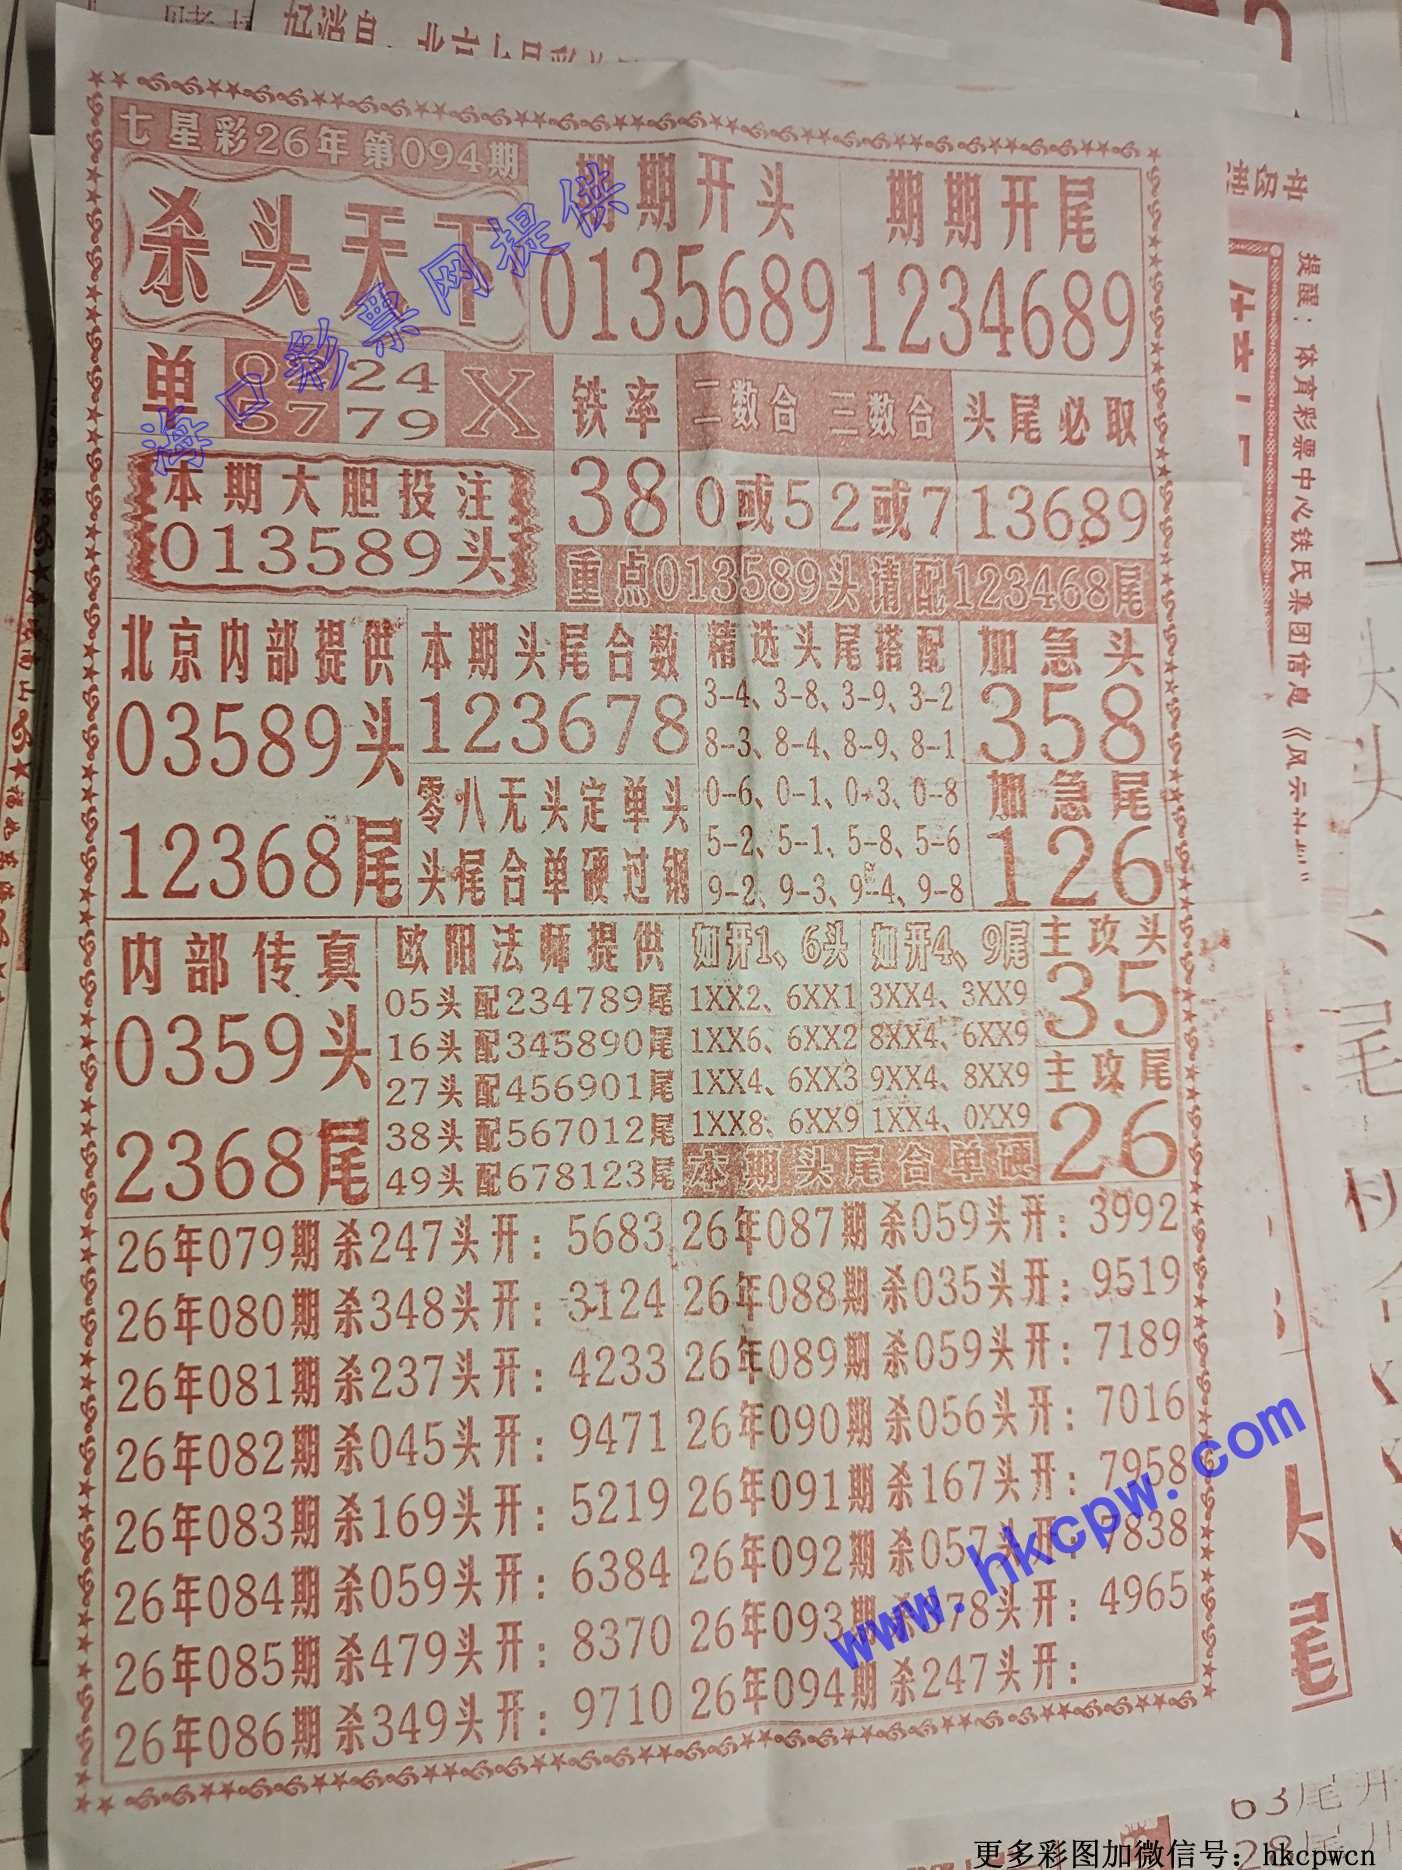 七星彩26年第094期
杀头天下
期期开头
0135689
期期开尾
1234689
海口彩票网提供
单
24
79
X
铁率
38
二数合
0或5
三数合
2或7
头尾必取
13689
本期大胆投注
013589头
重点013589头请配123468尾
北京内部提供
03589头
12368尾
本期头尾合数
123678
零八无头定单头
头尾合单硬过钢
精选头尾搭配
3-4、3-8、3-9、3-2
8-3、8-4、8-9、8-1
0-6、0-1、0-3、0-8
5-2、5-1、5-8、5-6
9-2、9-3、9-4、9-8
加急头
358
加急尾
126
内部传真
0359头
2368尾
欧阳法师提供
05头配234789尾
16头配345890尾
27头配456901尾
38头配567012尾
49头配678123尾
如开1、6头
1XX2、6XX1
1XX6、6XX2
1XX4、6XX3
1XX8、6XX9
如开4、9尾
3XX4、3XX9
8XX4、6XX9
9XX4、8XX9
1XX4、0XX9
本期头尾合单硬
主攻头
35
主攻尾
26
26年079期杀247头开：5683
26年080期杀348头开：3124
26年081期杀237头开：4233
26年082期杀045头开：9471
26年083期杀169头开：5219
26年084期杀059头开：6384
26年085期杀479头开：8370
26年086期杀349头开：9710
26年087期杀059头开：3992
26年088期杀035头开：9519
26年089期杀059头开：7189
26年090期杀056头开：7016
26年091期杀167头开：7958
26年092期杀057头开：7838
26年093期杀 78头开：4965
26年094期杀247头开：
www.hkcpw.com
提醒：体育彩票中心铁氏集团信息《风云
尾
63尾开
28尾开
更多彩图加微信号：hkcpwcn